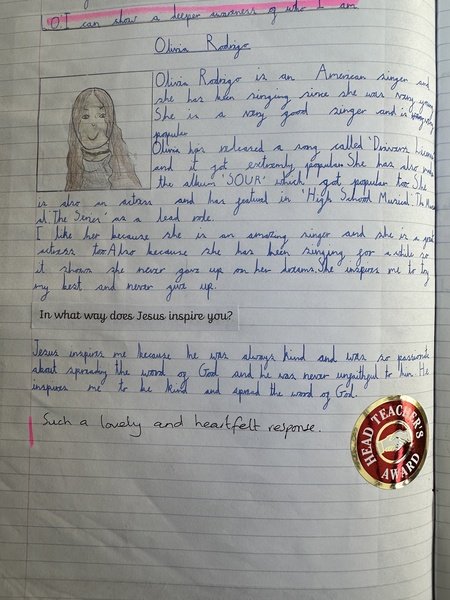 O: I can show a deeper awareness of who I am.
Olivia Rodrigo
Olivia Rodrigo is an American singer and
she has been singing since she was very young.
She is a very good singer and is
popular.
Olivia has released a song called 'Drivers License'
and it got extremly popular. She has also made
the album 'SOUR' which got popular too. She
is also an actress and has featured in 'High School Musical: The Musical
al: The Series' as a lead role.
I like her because she is an amazing singer and she is a great
actress too. Also because she has been singing for a while so
it shows she never gave up on her dreams. She inspires me to try
my best and never give up.
In what way does Jesus inspire you?
Jesus inspires me because he was always kind and was so passionate
about spreading the word of God and he was never unfaithful to him. He
inspires me to be kind and spread the word of God.
Such a lovely and heartfelt response.
HEAD TEACHER'S
AWARD